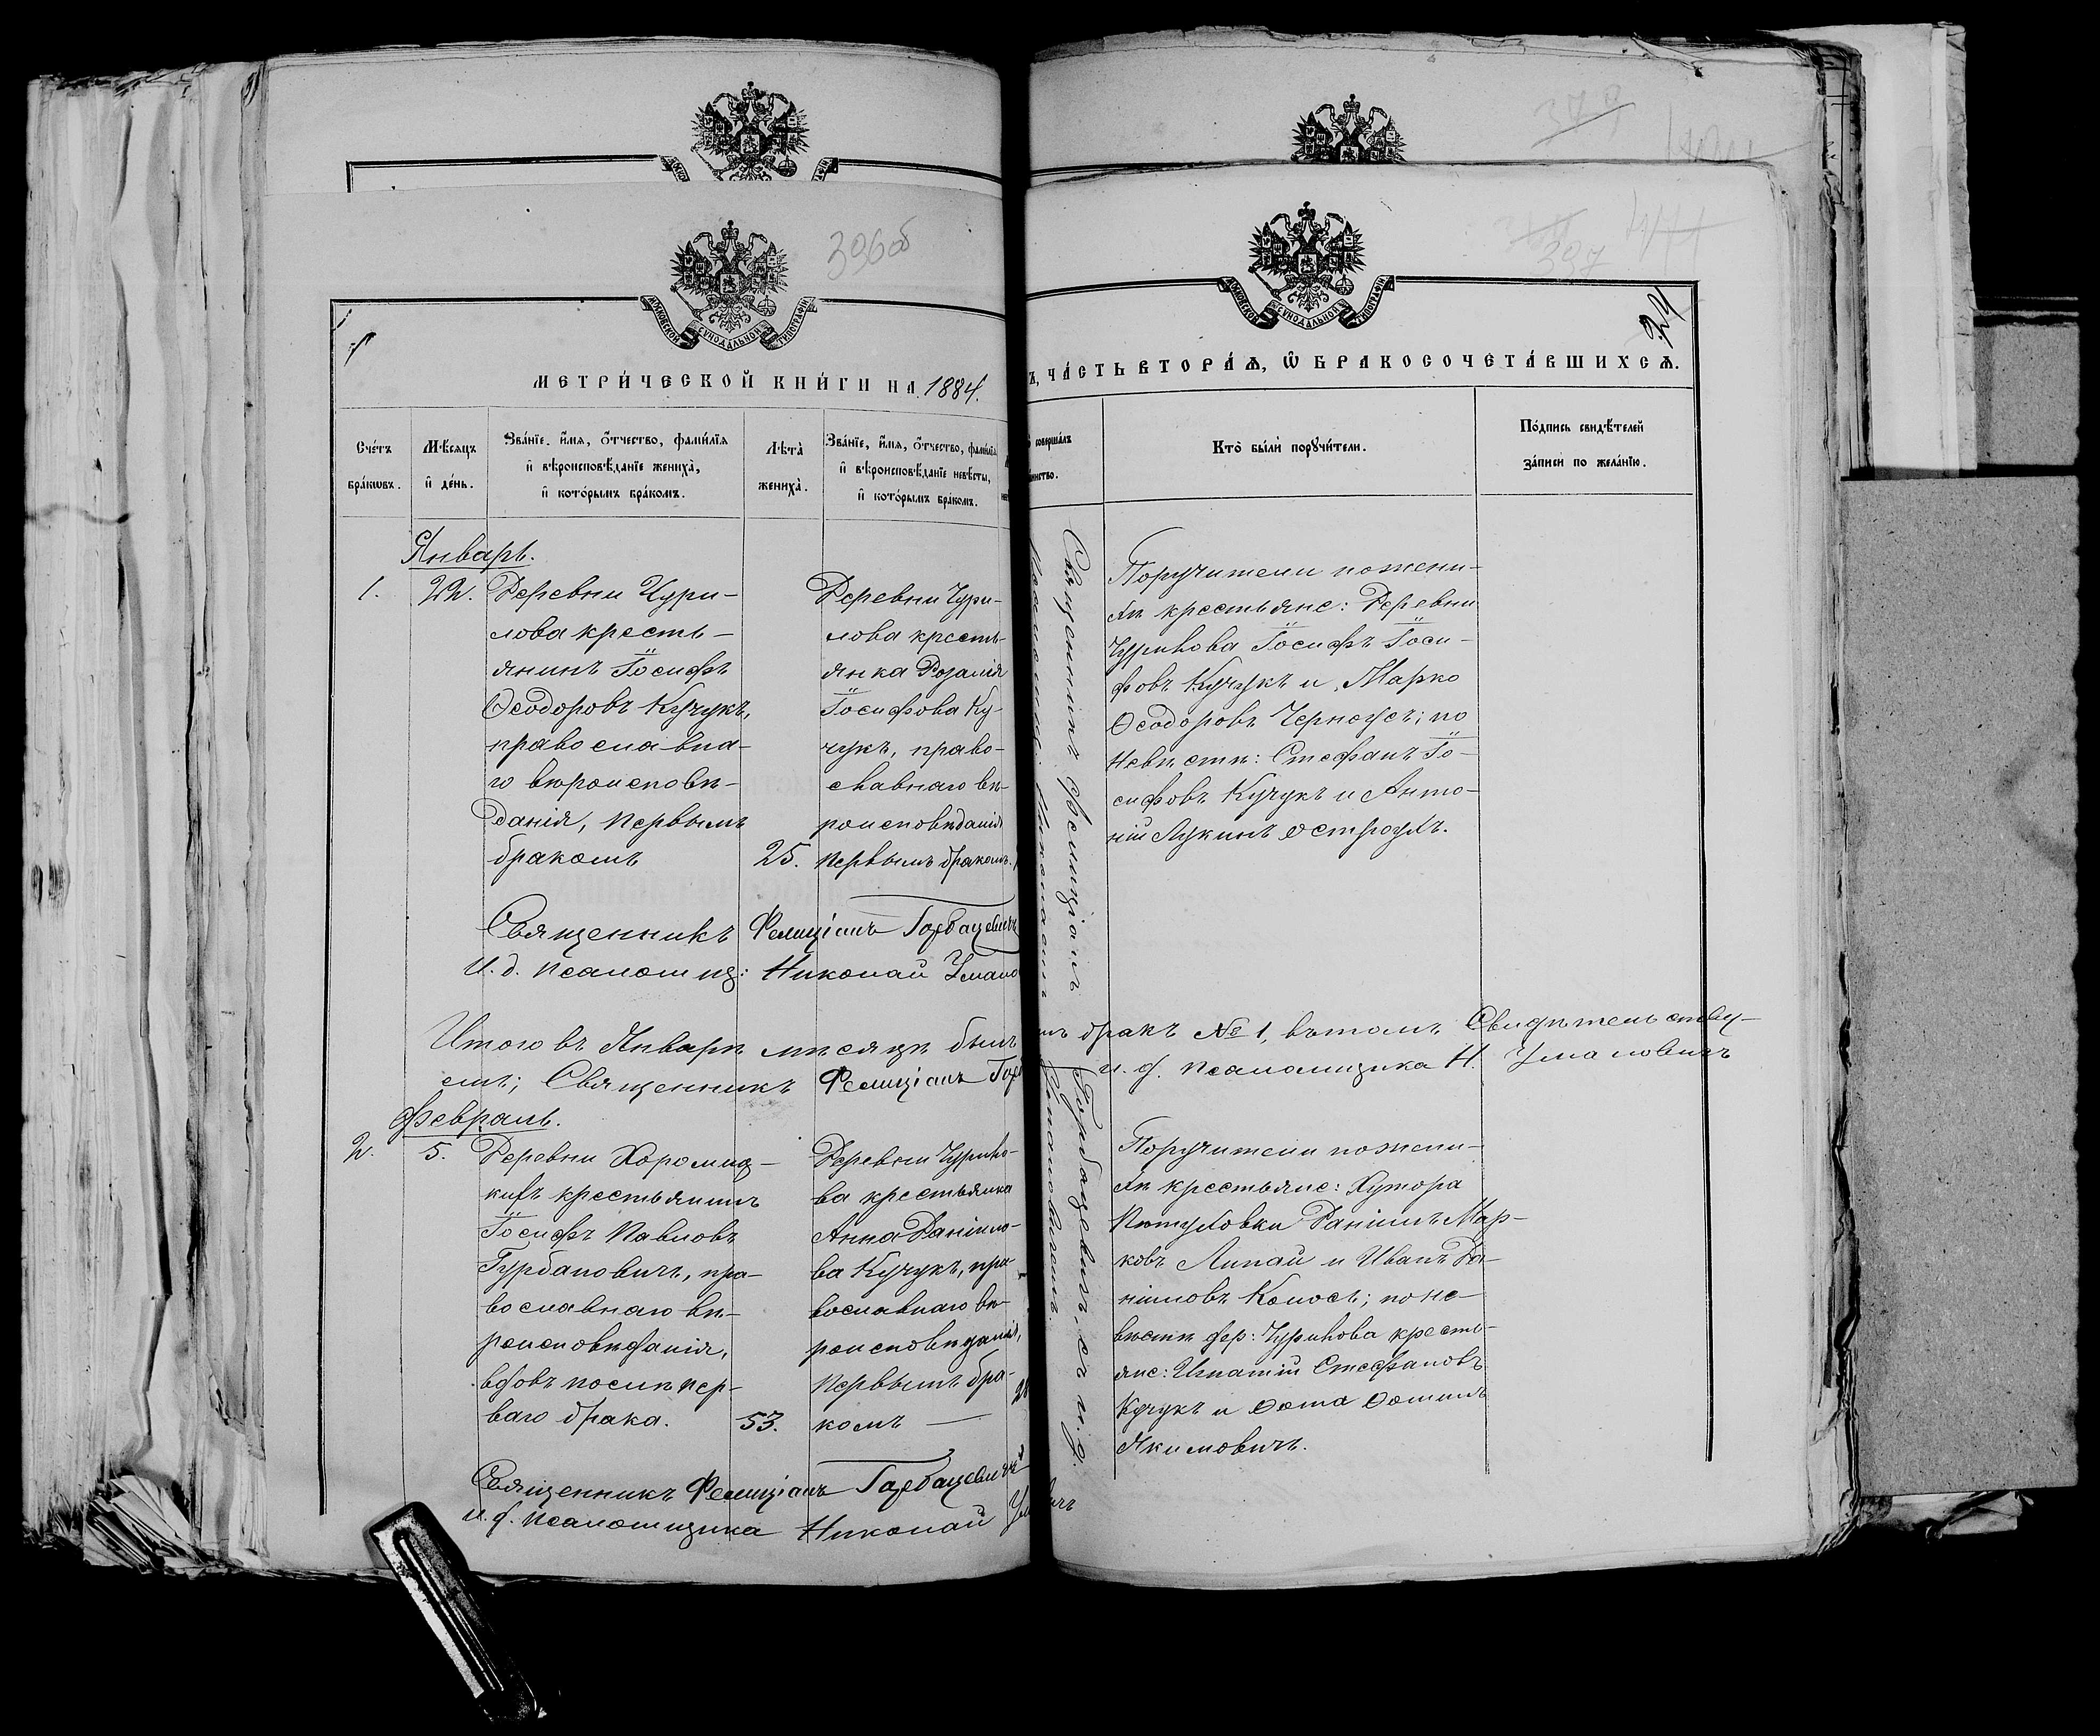 396об
397
МОСКОВСКОЙ СѴНОДАЛЬНОЙ ТИПОГРАФІИ
МОСКОВСКОЙ СѴНОДАЛЬНОЙ ТИПОГРАФІИ
МЕТРИ́ЧЕСКОЙ КНИ́ГИ НА 1884.
Ъ, ЧА́СТЬ ВТОРА́Ѧ, Ѡ҆ БРАКОСОЧЕТА́ВШИХСѦ.
Сче́тъ бра́кѡвъ.
Мѣ́сѧцъ и҆ де́нь.
Зва́нїе, и҆́мѧ, ѻ҆́тчество, фами́лїѧ и҆ вѣроисповѣ́данїе жениха̀, и҆ кото́рымъ бра́комъ.
Лѣ́та̀ жениха̀.
Зва́нїе, и҆́мѧ, ѻ҆́тчество, фами́лїѧ и҆ вѣроисповѣ́данїе невѣ́сты, и҆ кото́рымъ бра́комъ.
совершалъ
Кто̀ бы́ли порꙋчи́тели.
По́дпись свидѣ́телей за́писи по жела́нїю.
Январь.
1.
22.
Деревни Чури-
лова кресть-
янинъ Іосифъ
Ѳеодоровъ Кучукъ,
православна-
го вѣроисповѣ-
данія, первымъ
бракомъ
25.
Деревни Чури-
лова кресть-
янка Розалія
Іосифова Ку-
чукъ, право-
славнаго вѣ-
роисповѣданія
первымъ бракомъ.
Поручители по жени-
хѣ крестьяне: Деревни
Чурилова Іосифъ Іоси-
фовъ Кучукъ и Марко
Ѳеодоровъ Черноусъ; по
невѣстѣ: Стефанъ Іо-
сифовъ Кучукъ и Анто-
ній Лукинъ Остроухъ.
Священникъ Фелиціанъ Горбацевичъ
И. д. псаломщ: Николай
Итого въ Январѣ мѣсяцѣ былъ
бракъ № 1, въ томъ свидѣтельству-
емъ; Священникъ Фелиціанъ
и. д. псаломщика Н.
Священникъ Фелиціанъ Горбацевичъ съ и. д.
Февраль.
2.
5.
Деревни Хоромиц-
кихъ крестьянинъ
Іосифъ Павловъ
Гурбановичъ, пра-
вославнаго вѣ-
роисповѣданія,
вдовъ послѣ пер-
ваго брака.
53.
Деревни Чурило-
ва крестьянка
Анна Даніило-
ва Кучукъ, пра-
вославнаго вѣ-
роисповѣданія,
первымъ бра-
комъ —
Поручители по жени-
хѣ крестьяне: Хутора
Даніилъ Мар-
ковъ Липай и Иванъ Да-
ніиловъ Колосъ; по не-
вѣстѣ дер: Чурилова кресть-
яне: Игнатій Стефановъ
Кучукъ и Ѳома Ѳоминъ
Якимовичъ.
Священникъ Фелиціанъ Горбацевичъ
и. д. псаломщика Николай